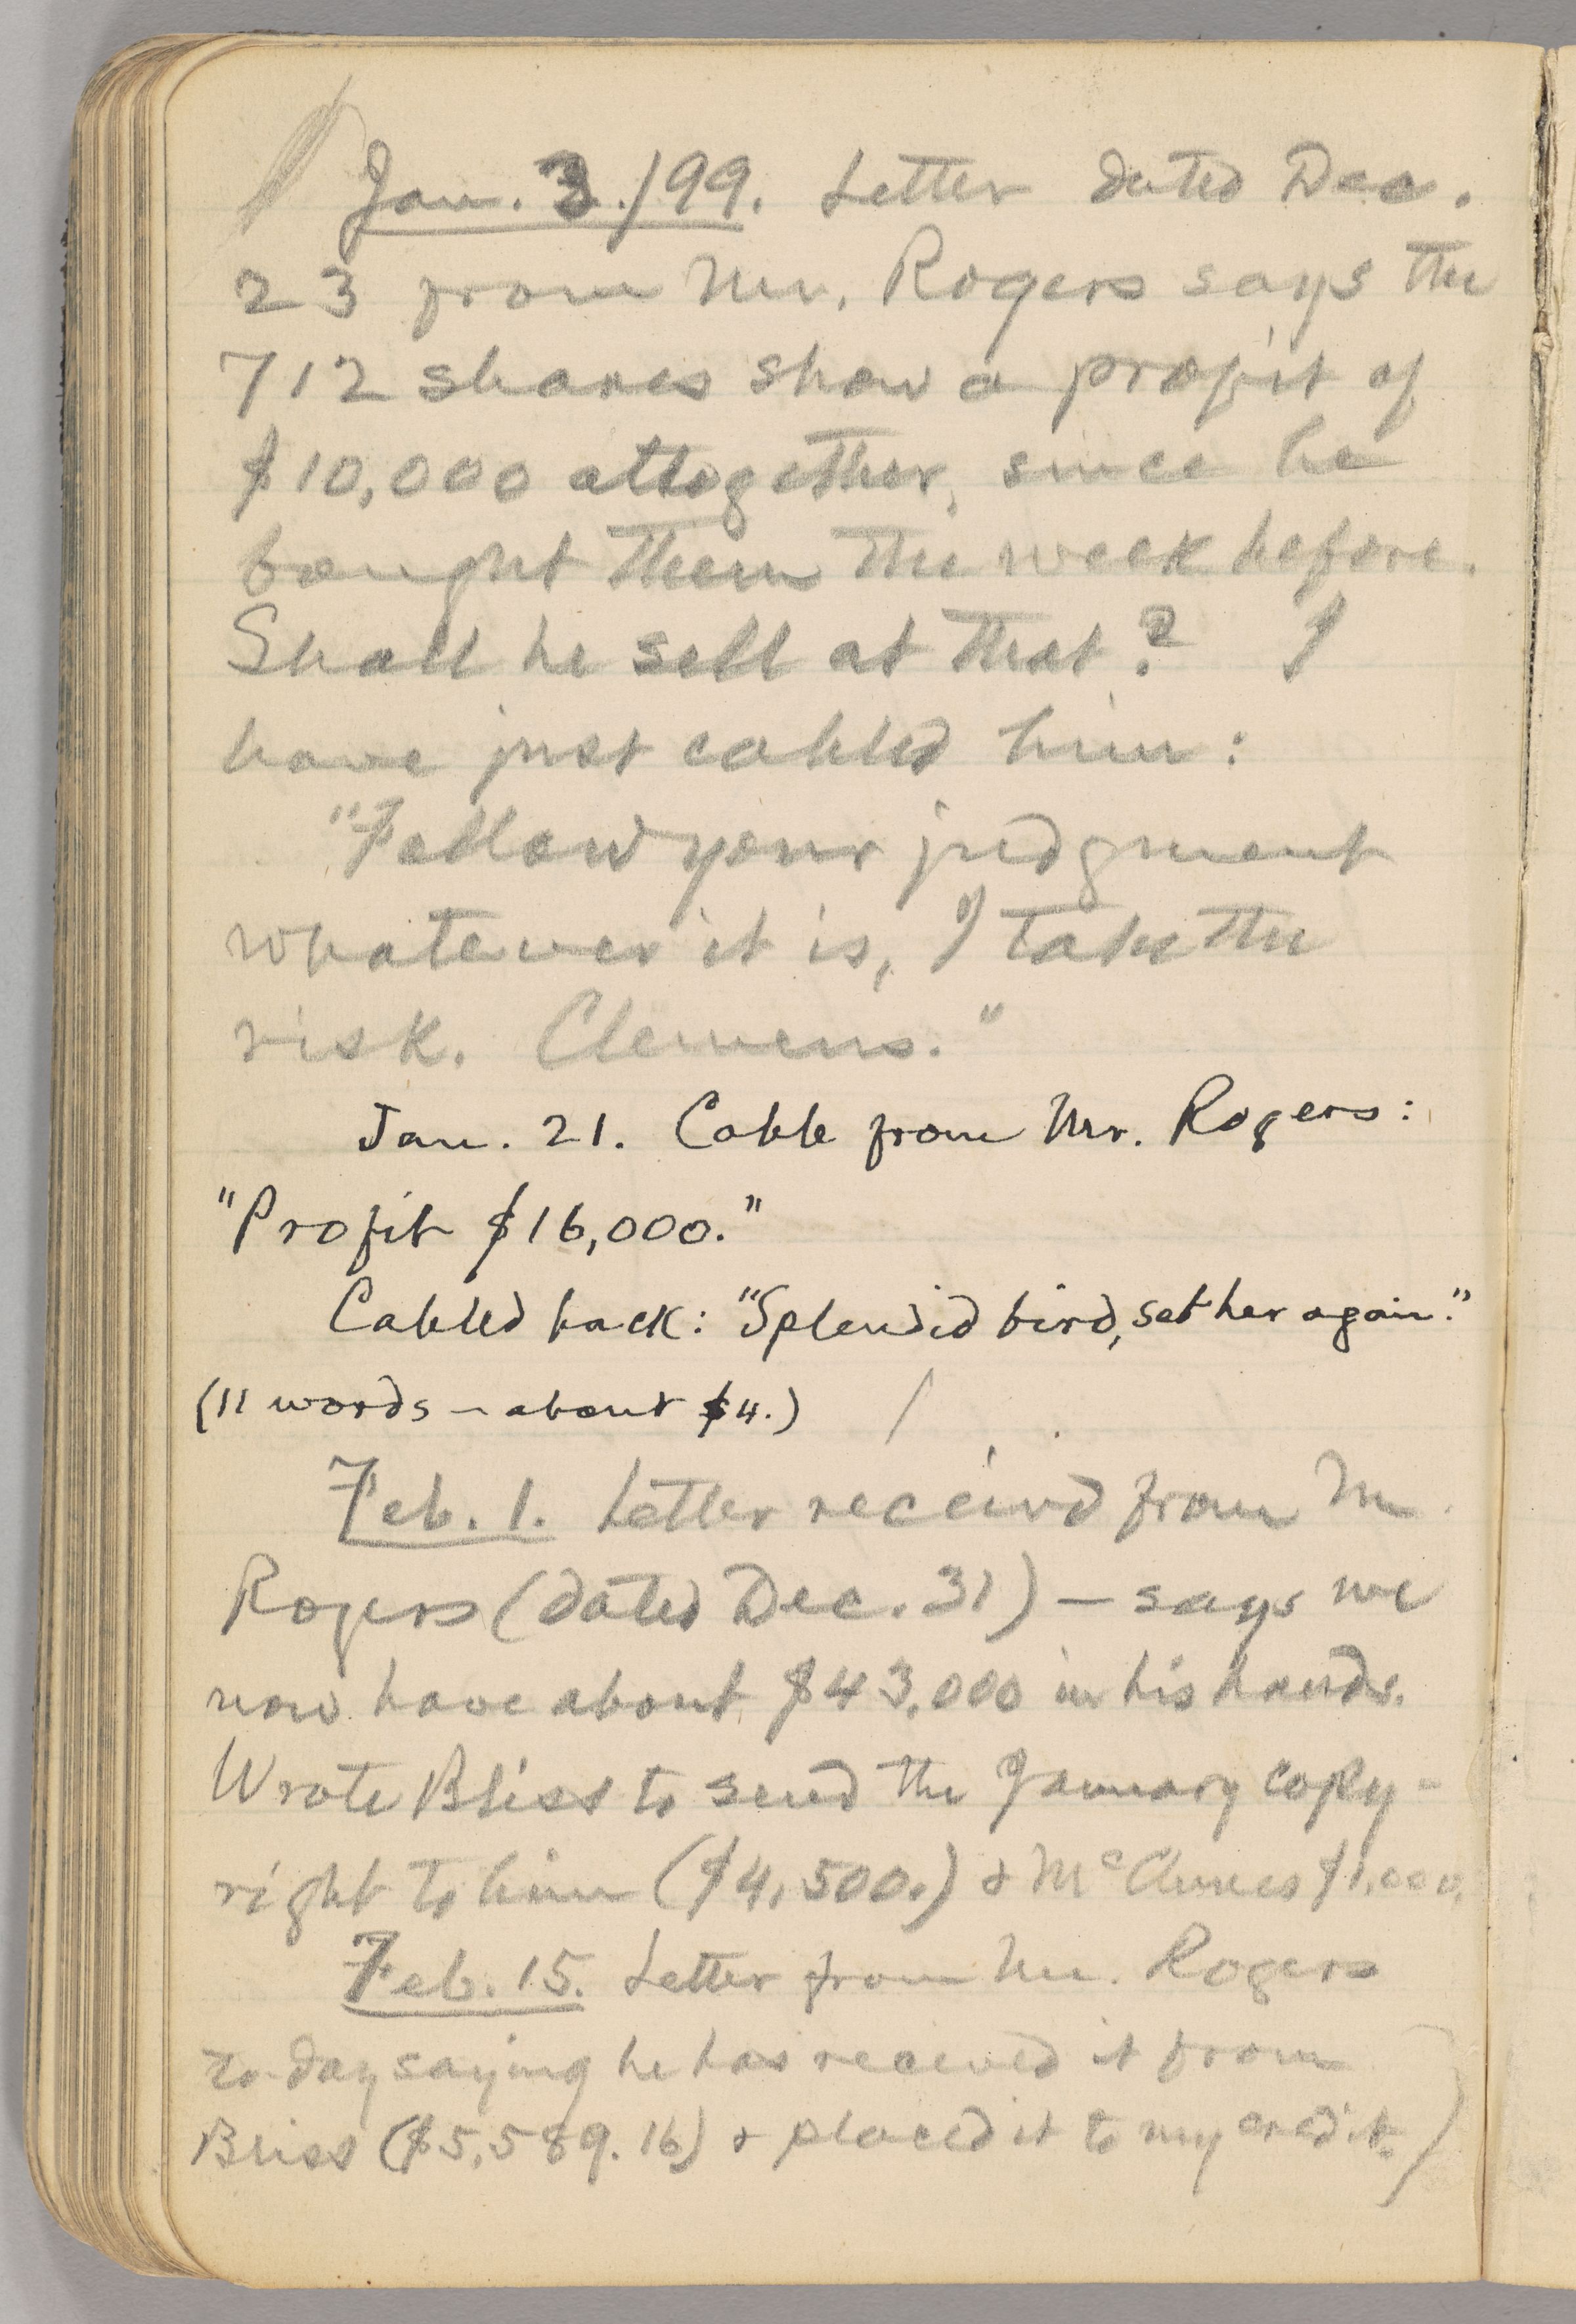 Jan. 3./99. Letter dated Dec.
23 from Mr. Rogers says the
712 shares show a profit of
$10,000 altogether, since he
bought them the week before.
Shall he sell at that? I
have just cabled him:
"Follow your judgment
whatever it is, I take the
risk. Clemens."
Jan. 21. Cable from Mr. Rogers:
"Profit $16,000."
Cabled back: "Splendid bird, set her again."
(11 words — about $4.)
Feb. 1. Letter received from Mr.
Rogers (dated Dec. 31) — says we
now have about $43,000 in his hands.
Wrote Bliss to send the January copy-
right to him ($4,500.) & McClures $1,000.
Feb. 15. Letter from Mr. Rogers
to-day saying he has received it from
Bliss ($5,589.16) & placed it to my credit.)